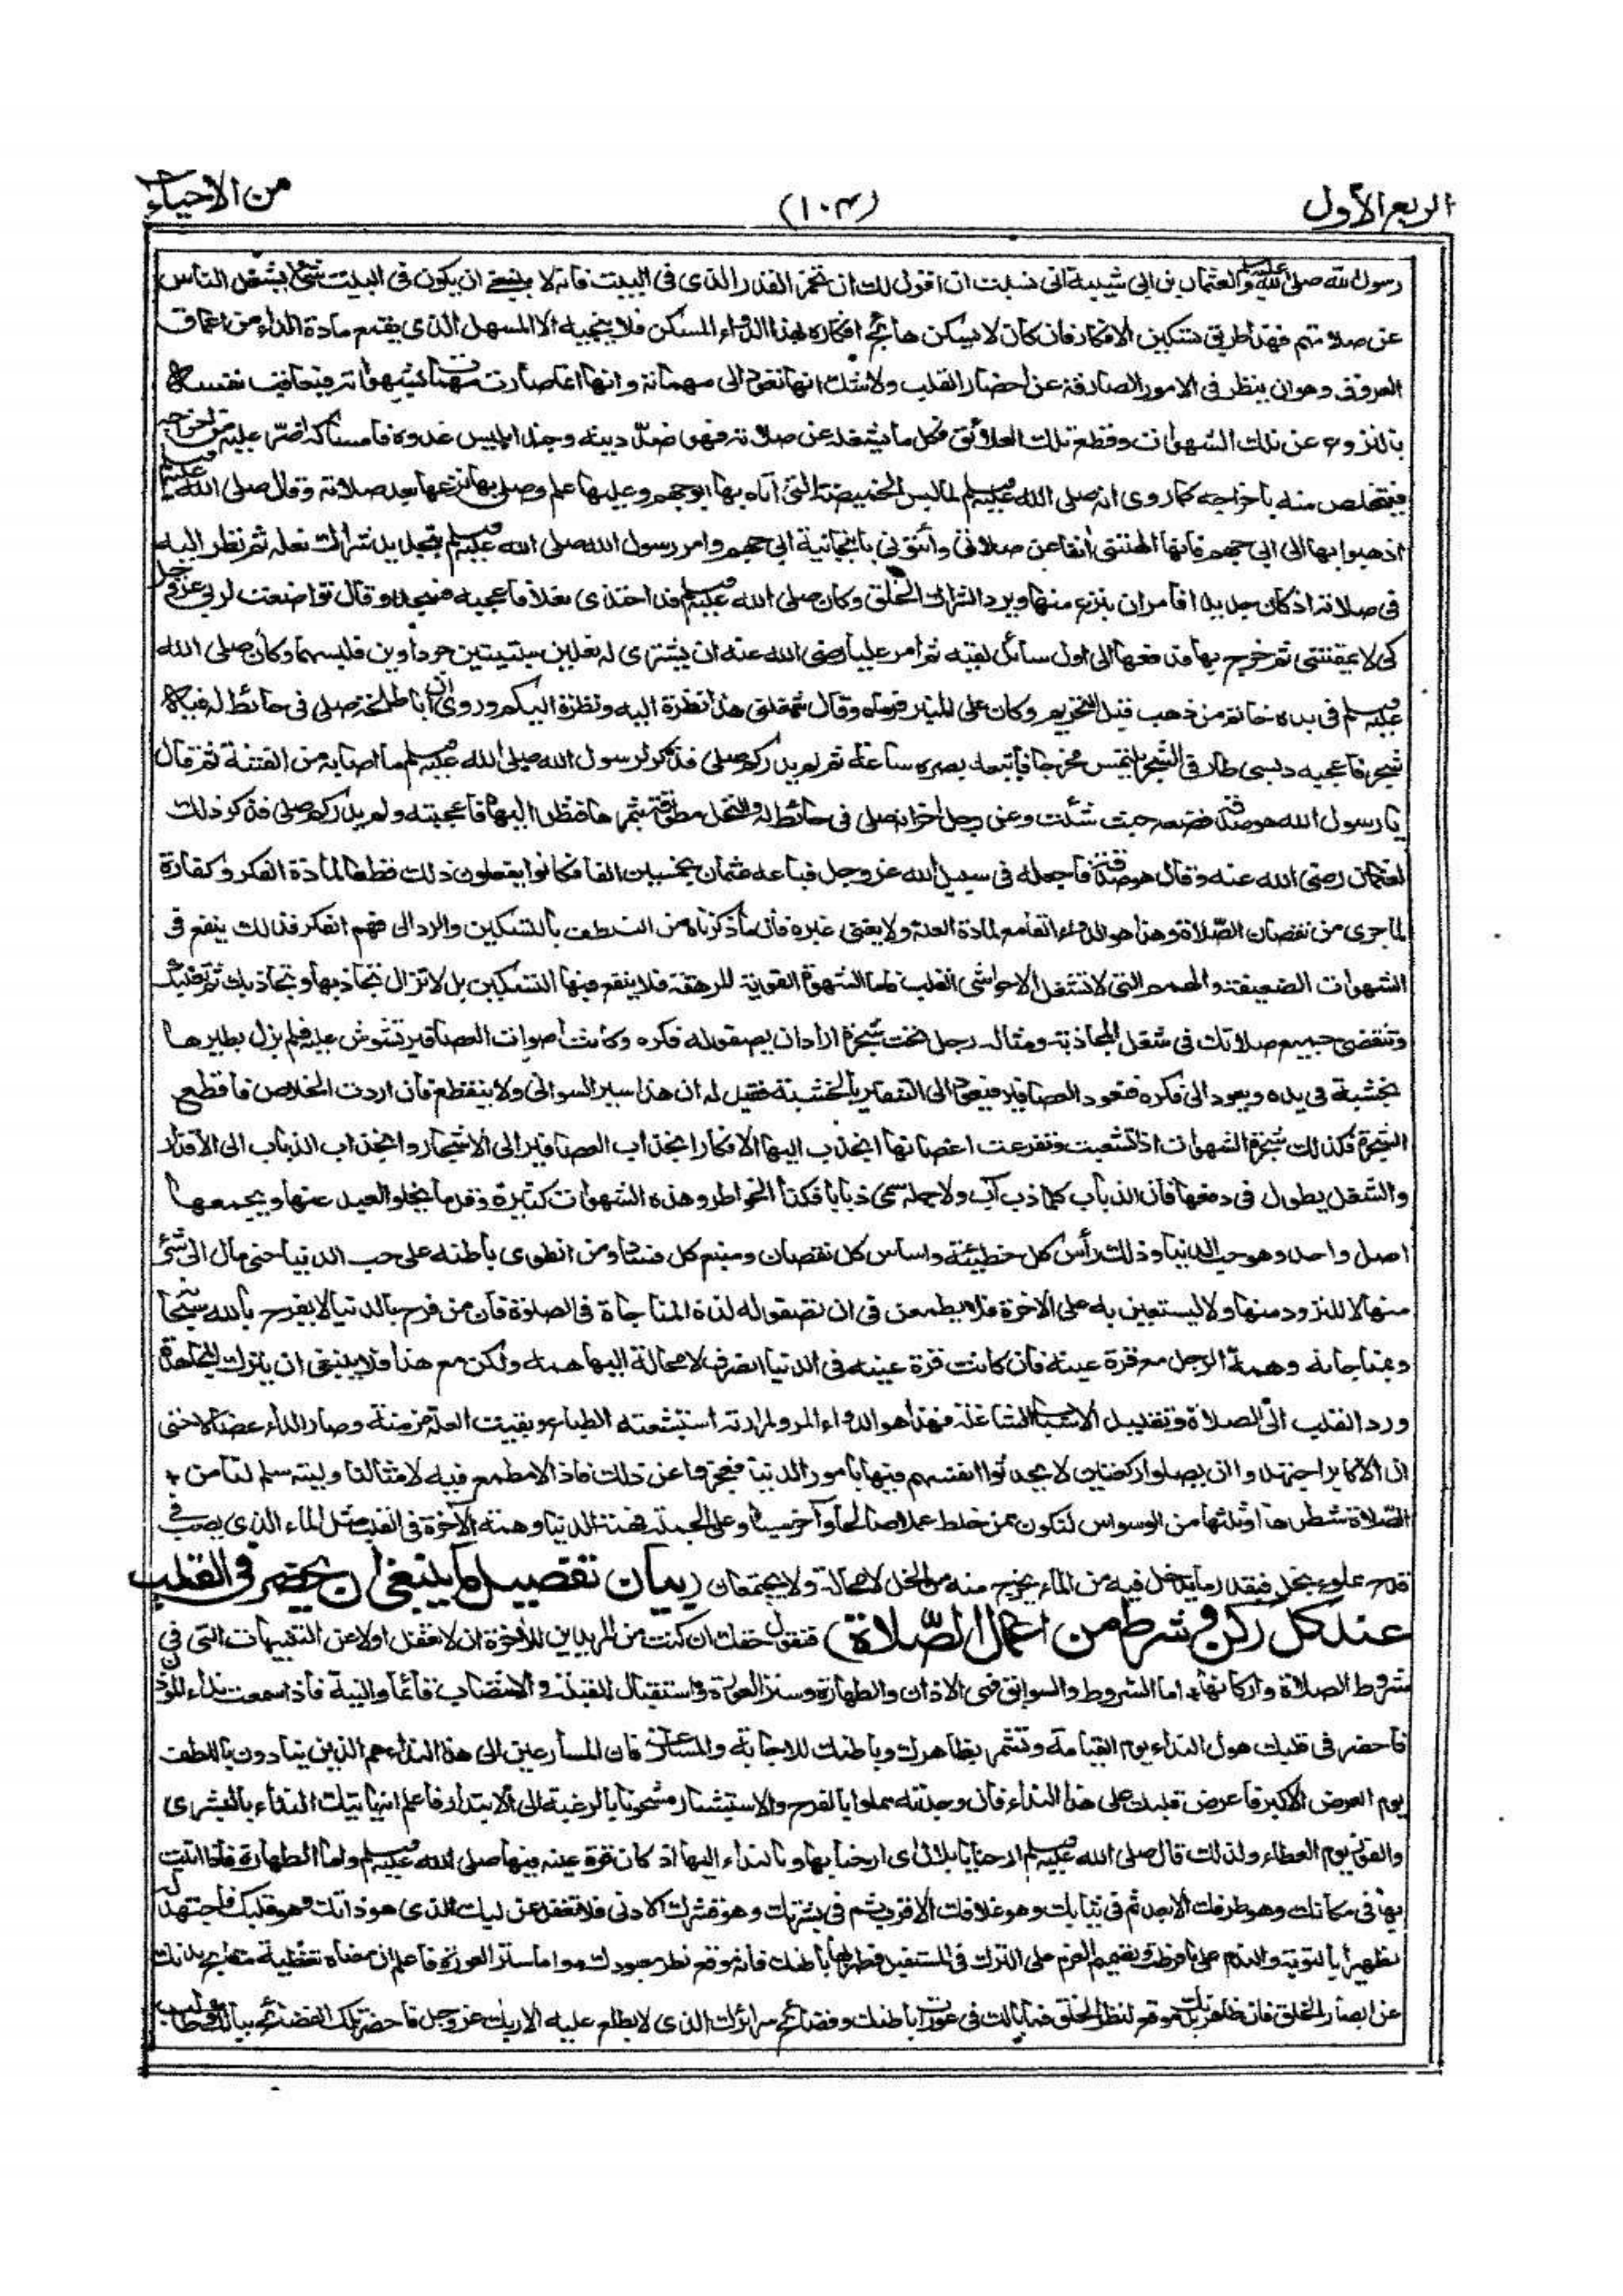 الربع الأول
(١٠٣)
من الأحياء
رسول الله صلى الله عليه وسلم لعثمان بن ابى شيبة انى نسيت ان اقول لك ان تخمر القدر الذى فى البيت فانه لا ينبغى ان يكون فى البيت شئ يشغل الناس
عن صلاتهم فهذا طريق تسكين الافكار فان كان لا يسكن هائج افكاره بهذا الدواء المسكن فلا ينجيه الا المسهل الذى يقمع مادة الداء من اعماق
العروق وهو ان ينظر فى الامور الصارفة عن احضار القلب ولا شك انها تعود الى مهماته وانها انما صارت مهمات لشهواته فيعاقب نفسه
بالنزوع عن تلك الشهوات وقطع تلك العلائق فكل ما يشغله عن صلاته فهو ضد دينه وجند ابليس عدوه فامساكه اضر عليه من اخراجه
فيتخلص منه باخراجه كما روى انه صلى الله عليه وسلم لما لبس الخميصة التى اتاه بها ابو جهم وعليها علم وصلى بها نزعها بعد صلاته وقال صلى الله عليه وسلم
اذهبوا بها الى ابى جهم فانها الهتنى آنفا عن صلاتى وأتونى بانبجانية ابى جهم وامر رسول الله صلى الله عليه وسلم بتجديد شراك نعله ثم نظر اليه
فى صلاته اذ كان جديدا فامر ان ينزع منها ويرد الشراك الخلق وكان صلى الله عليه وسلم قد احتذى نعلا فاعجبه فسجد وقال تواضعت لربى عز وجل
كى لا يمقتنى ثم خرج بها فدفعها الى اول سائل لقيه ثم امر عليا رضى الله عنه ان يشترى له نعلين سبتيتين جرداوين فلبسهما وكان صلى الله
عليه وسلم فى يده خاتم من ذهب قبل التحريم وكان على المنبر فرماه وقال شغلنى هذا نظرة اليه ونظرة اليكم وروى ان ابا طلحة صلى فى حائط له فيه
شجر فاعجبه دبسى طار فى الشجر يلتمس مخرجا فاتبعه بصره ساعة ثم لم يدر كم صلى فذكر لرسول الله صلى الله عليه وسلم ما اصابه من الفتنة ثم قال
يا رسول الله هو صدقة فضعه حيث شئت وعن رجل آخر انه صلى فى حائط له والنخل مطوقة بثمرها فنظر اليها فاعجبته ولم يدر كم صلى فذكر ذلك
لعثمان رضى الله عنه وقال هو صدقة فاجعله فى سبيل الله عز وجل فباعه عثمان بخمسين الفا فكانوا يفعلون ذلك قطعا لمادة الفكر وكفارة
لما جرى من نقصان الصّلاة وهذا هو الدواء القامع لمادة العلة ولا يغنى غيره فان ما ذكرناه من التلطف بالتسكين والرد الى فهم الفكر فذلك ينفع فى
الشهوات الضعيفة والهمم التى لا تشغل الا حواشى القلب فاما الشهوة القوية المرهقة فلا ينفع فيها التسكين بل لا تزال تجاذبها وتجاذبك ثم تغلبك
وتنقضى جميع صلاتك فى شغل المجاذبة ومثاله رجل تحت شجرة اراد ان يصفو له فكره وكانت اصوات العصافير تشوش عليه فلم يزل يطيرها
بخشبة فى يده ويعود الى فكره فتعود العصافير فيعود الى التنفير بالخشبة فقيل له ان هذا سير السوانى ولا ينقطع فان اردت الخلاص فاقطع
الشجرة فكذلك شجرة الشهوات اذا تشعبت وتفرعت اغصانها انجذب اليها الافكار انجذاب العصافير الى الاشجار وانجذاب الذباب الى الاقذار
والشغل يطول فى دفعها فان الذباب كلما ذب آب ولاجله سمى ذبابا فكذا الخواطر وهذه الشهوات كثيرة وقلما يخلو العبد عنها ويجمعها
اصل واحد وهو حب الدنيا وذلك رأس كل خطيئة واساس كل نقصان ومنبع كل فساد ومن انطوى باطنه على حب الدنيا حتى مال الى شئ
منها لا للتزود منها ولا ليستعين به على الآخرة فلا يطمعن فى ان تصفو له لذة المناجاة فى الصلوة فان من فرح بالدنيا لا يفرح بالله سبحانه
وبمناجاته وهمة الرجل مع قرة عينه فان كانت قرة عينه فى الدنيا انصرف لا محالة اليها همه ولكن مع هذا فلا ينبغى ان يترك المجاهدة
ورد القلب الى الصلاة وتقليل الاسباب الشاغلة فهذا هو الدواء المر ولمرارته استبشعته الطباع وبقيت العلة مزمنة وصار الداء عضالا حتى
ان الاكابر اجتهدوا ان يصلوا ركعتين لا يحدثوا انفسهم فيها بامور الدنيا فعجزوا عن ذلك فاذا لا مطمع فيه لامثالنا وليته سلم لنا من
الصّلاة شطرها او ثلثها من الوسواس لنكون ممن خلط عملا صالحا وآخر سيئا وعلى الجملة فهمة الدنيا وهمة الآخرة فى القلب مثل الماء الذى يصب فى
قدح مملوء بخل فبقدر ما يدخل فيه من الماء يخرج منه من الخل لا محالة ولا يجتمعان (بيان تفصيل ما ينبغى ان يحضر فى القلب
عند كل ركن وشرط من اعمال الصّلاة) فنقول حقك ان كنت من المريدين للآخرة ان لا تغفل اولا عن التنبيهات التى فى
شروط الصلاة واركانها اما الشروط والسوابق فهى الاذان والطهارة وستر العورة واستقبال القبلة والانتصاب قائما والنية فاذا سمعت نداء المؤذن
فاحضر فى قلبك هول النداء يوم القيامة وتشمر بظاهرك وباطنك للاجابة والمسارعة فان المسارعين الى هذا النداء هم الذين ينادون باللطف
يوم العرض الاكبر فاعرض قلبك على هذا النداء فان وجدته مملوا بالفرح والاستبشار مشحونا بالرغبة الى الابتدار فاعلم انه يأتيك النداء بالبشرى
والفوز يوم العطاء ولذلك قال صلى الله عليه وسلم ارحنا يا بلال اى ارحنا بها وبالنداء اليها اذ كان قرة عينه فيها صلى الله عليه وسلم واما الطهارة فاذا اتيت
بها فى مكانك وهو ظرفك الابعد ثم فى ثيابك وهو غلافك الاقرب ثم فى بشرتك وهو قشرك الادنى فلا تغفل عن لبك الذى هو ذاتك وهو قلبك فاجتهد له
تطهيرا بالتوبة والندم على ما فرطت وتصميم العزم على الترك فى المستقبل فطهر بها باطنك فانه موقع نظر معبودك واما ستر العورة فاعلم ان معناه تغطية مقابح بدنك
عن ابصار الخلق فان ظاهر بدنك موقع لنظر الخلق فما بالك فى عورات باطنك وفضائح سرائرك الذى لا يطلع عليه الا ربك عز وجل فاحضر تلك الفضائح ببالك وطالب